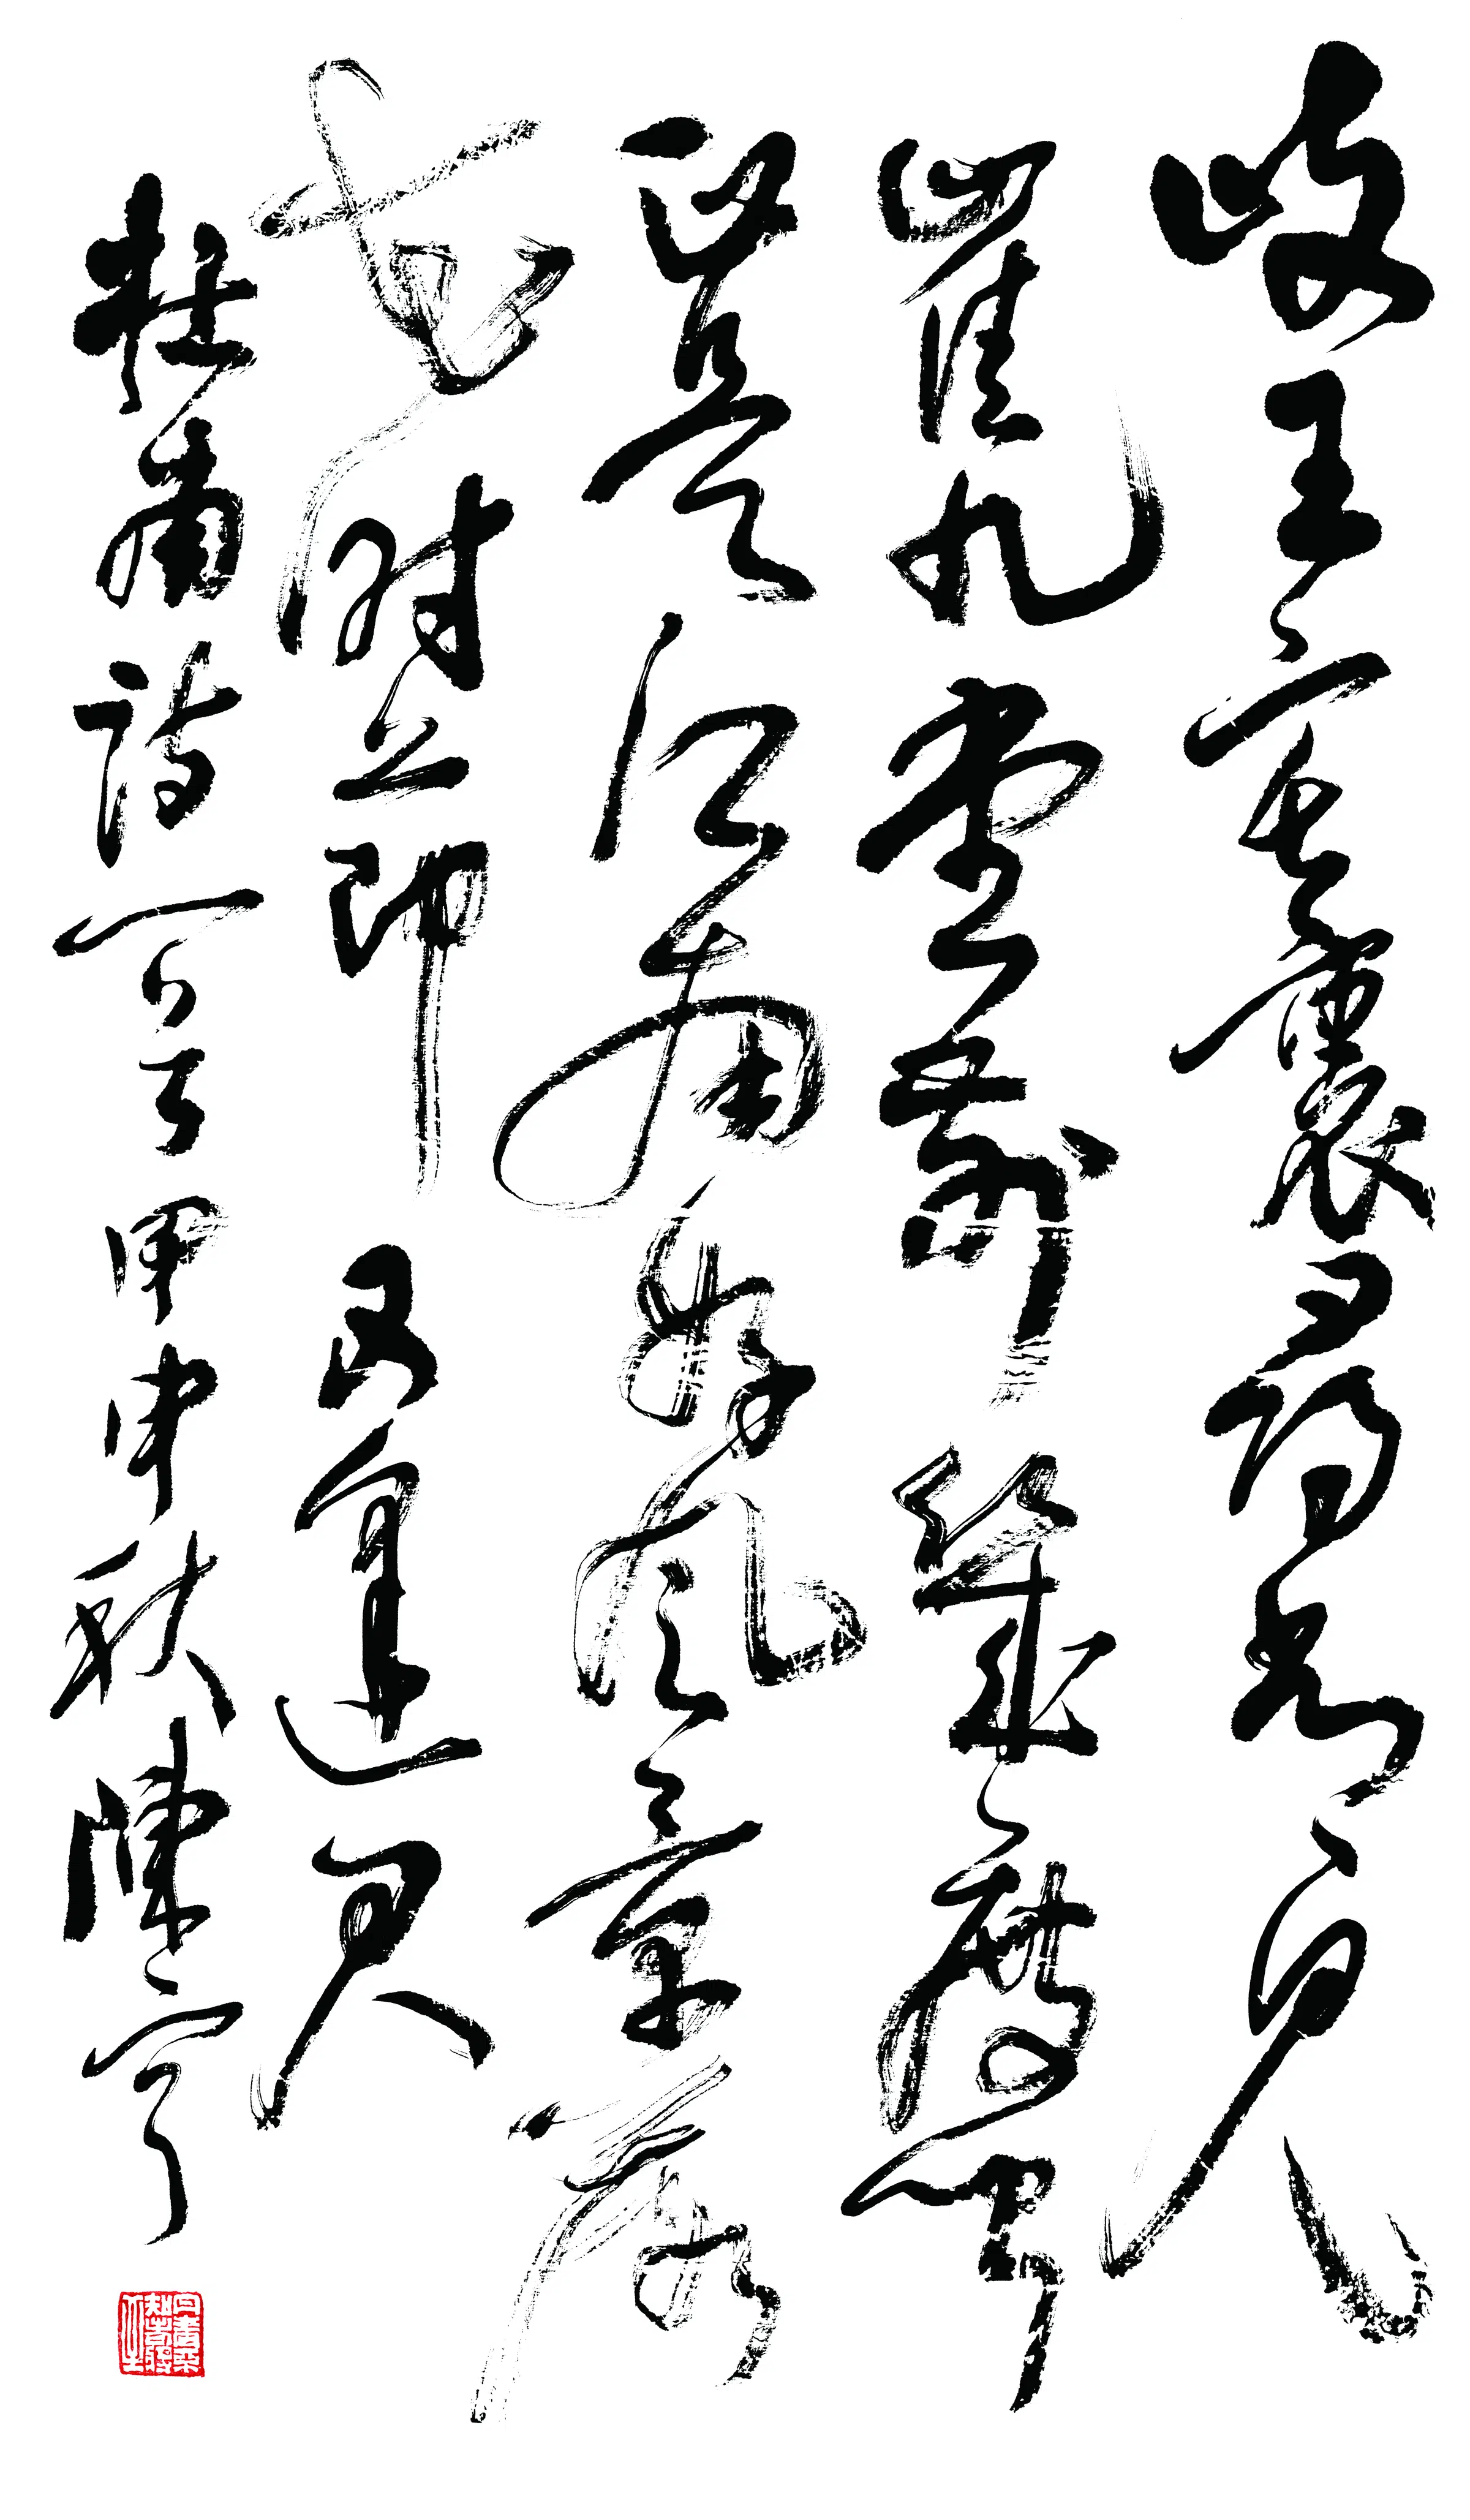 岐王宅裏尋常見
崔九堂前幾度聞
正是江南好風景落
花時節又逢君
杜甫詩 甲申秋陳宁